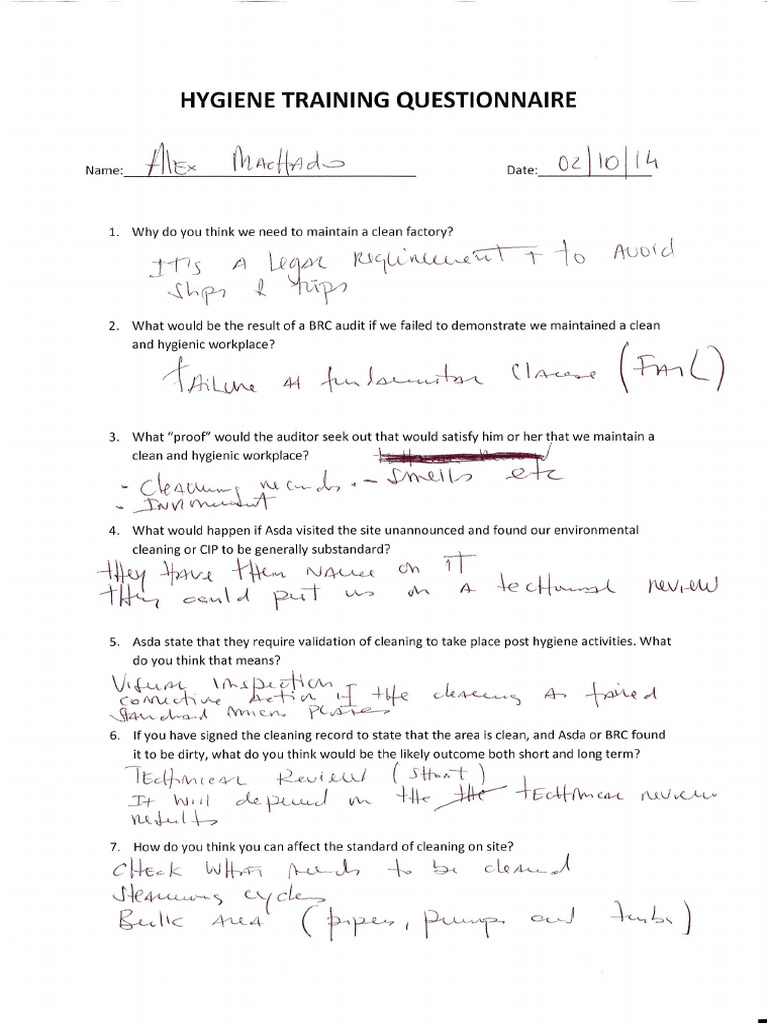 HYGIENE TRAINING QUESTIONNAIRE
Name: Alex Machado Date: 02/10/14
1. Why do you think we need to maintain a clean factory?
IT'S A Legal Reqlinement + to AVOID
slips & trips
2. What would be the result of a BRC audit if we failed to demonstrate we maintained a clean
and hygienic workplace?
FAilure at fundamental Clause (FAIL)
3. What "proof" would the auditor seek out that would satisfy him or her that we maintain a
clean and hygienic workplace?
- Cleaning records. - smells etc
-
4. What would happen if Asda visited the site unannounced and found our environmental
cleaning or CIP to be generally substandard?
they have them name on IT
they could put us on a technical review
5. Asda state that they require validation of cleaning to take place post hygiene activities. What
do you think that means?
Visual Inspection
corrective Action if the cleaning as failed
standard micro plates
6. If you have signed the cleaning record to state that the area is clean, and Asda or BRC found
it to be dirty, what do you think would be the likely outcome both short and long term?
Technical Review (short)
It will depend on the the technical review
results
7. How do you think you can affect the standard of cleaning on site?
Check What needs to be cleaned
steaming cycles
Bulk Area (pipes, pumps and tanks)